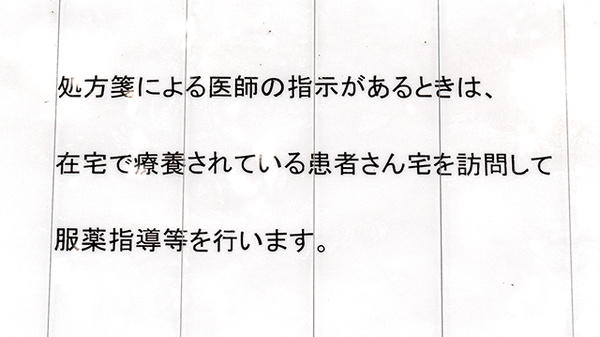 処方箋による医師の指示があるときは、
在宅で療養されている患者さん宅を訪問して
服薬指導等を行います。